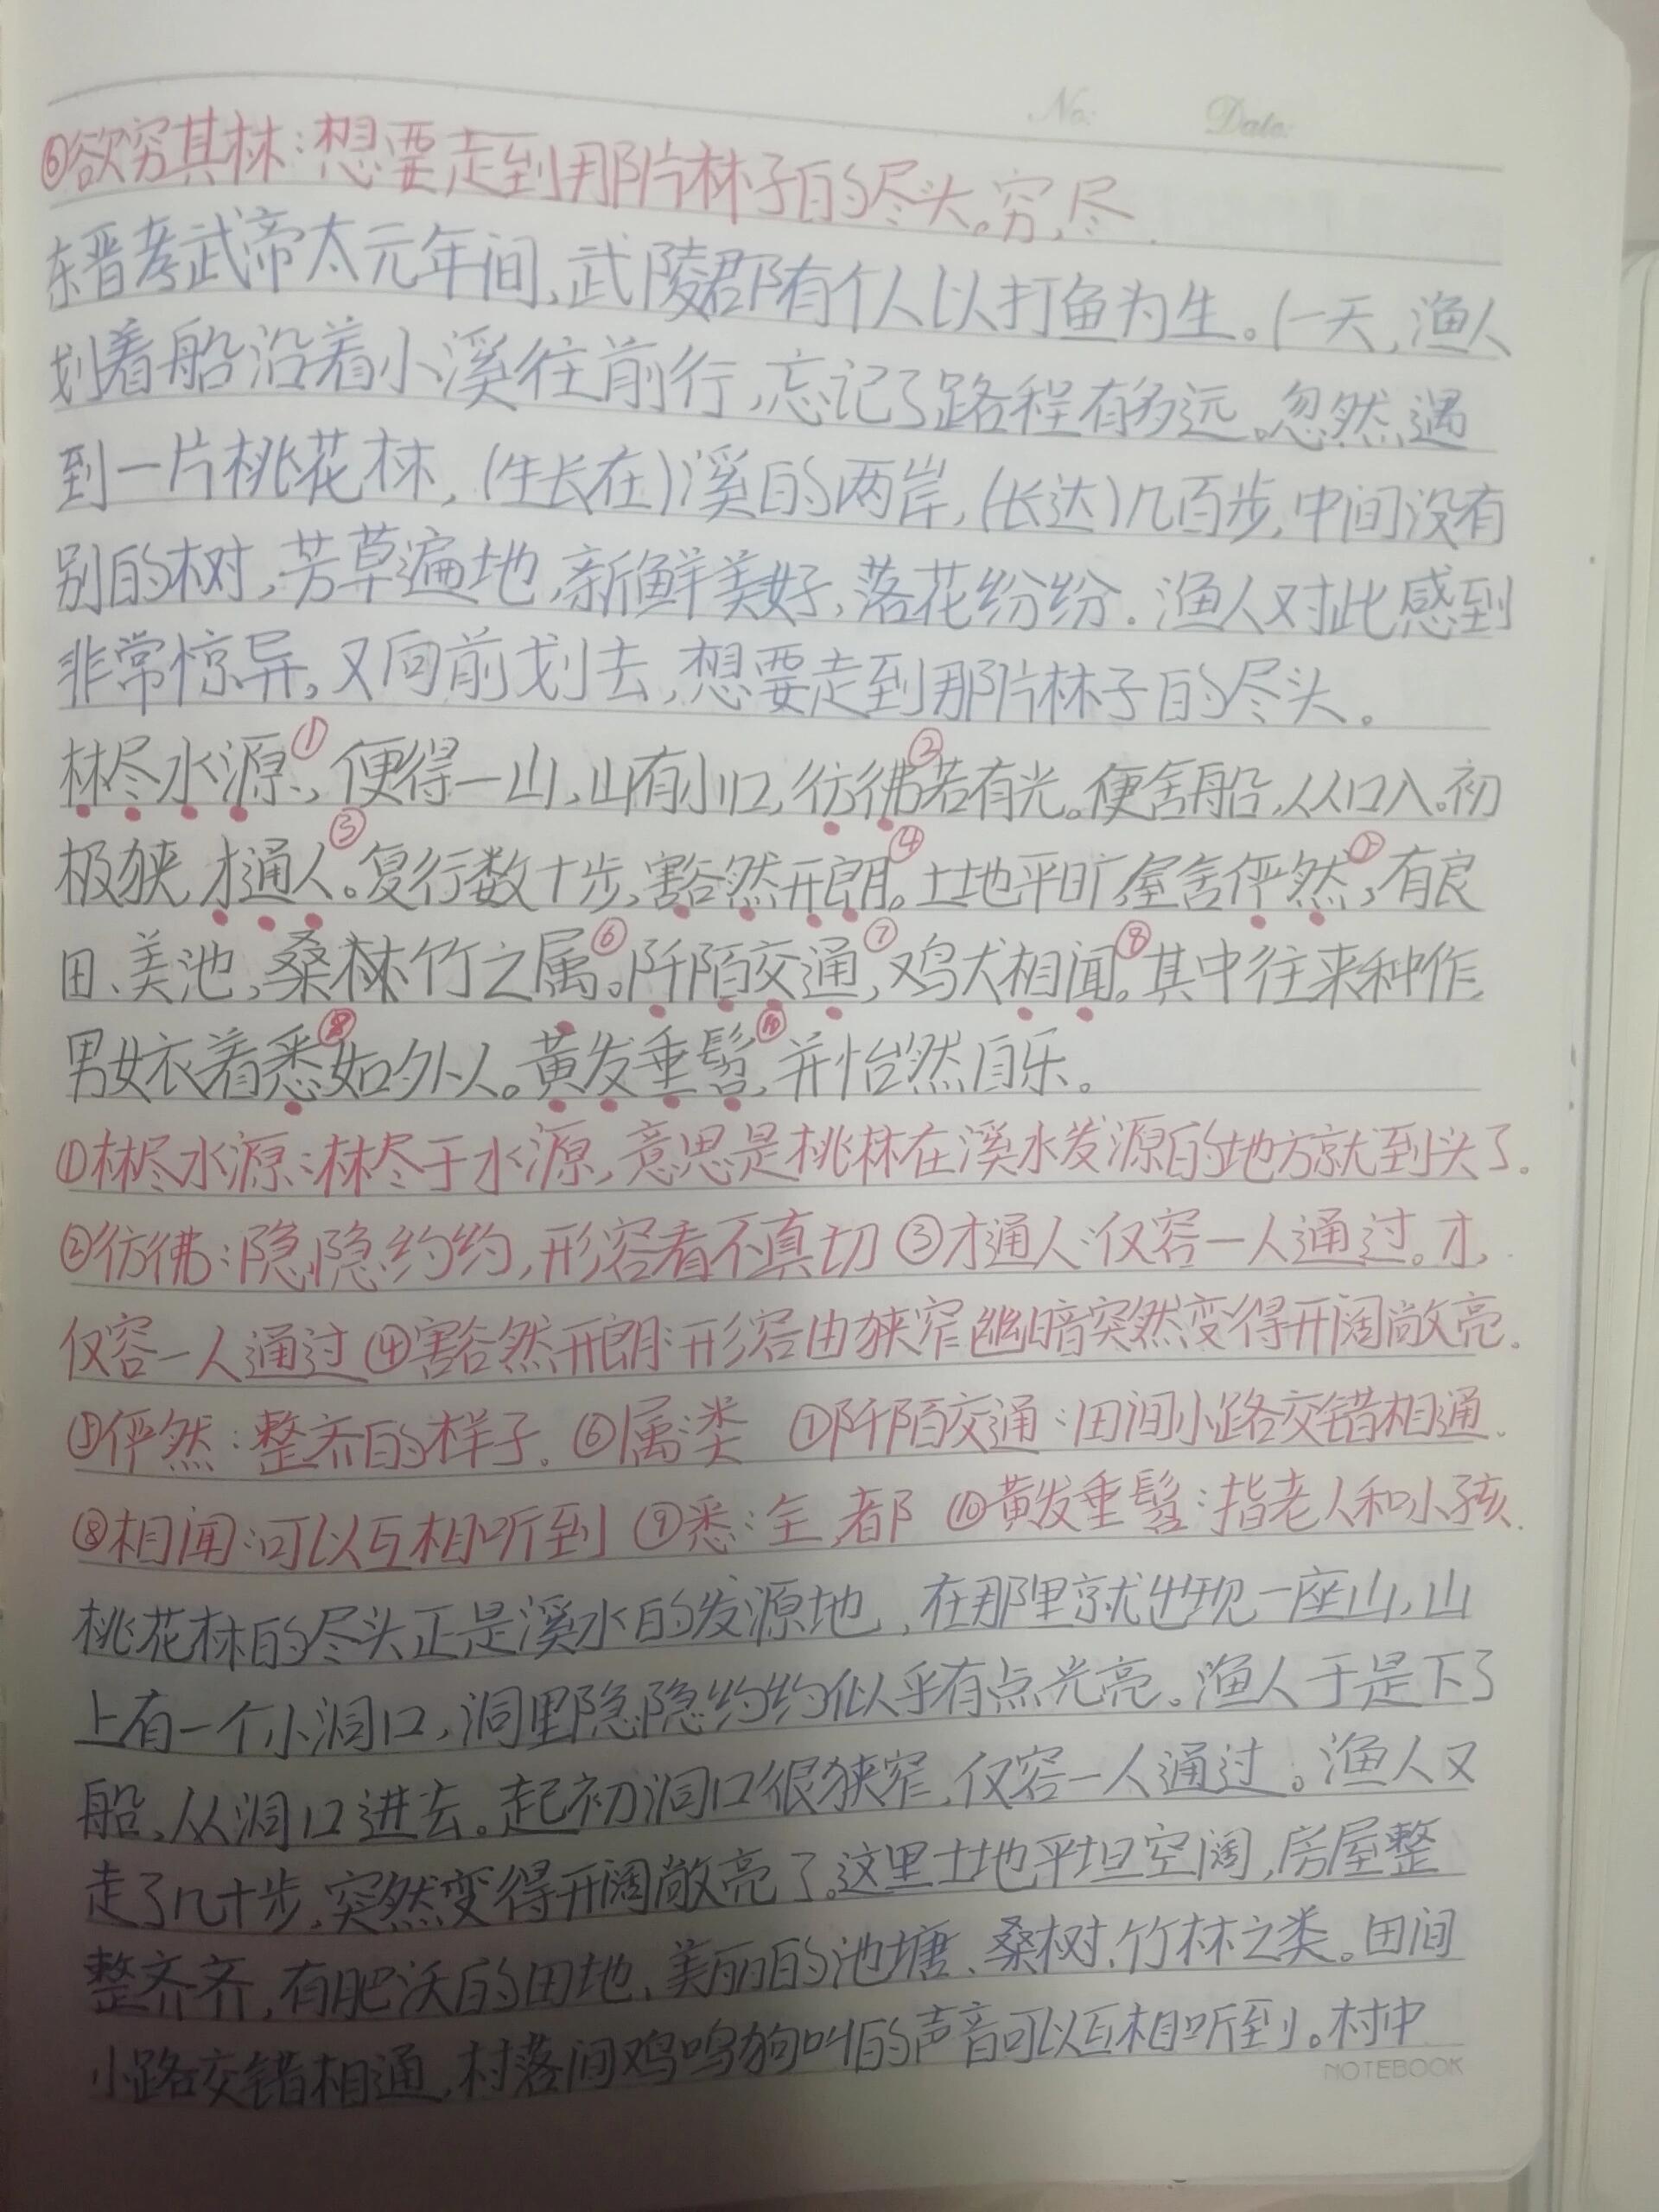 No: Date:
⑥欲穷其林:想要走到那片林子的尽头。穷,尽.
东晋孝武帝太元年间,武陵郡有个人以打鱼为生。(一天,渔人
划着船沿着小溪往前行,忘记了路程有多远。忽然遇
到一片桃花林,(生长在)溪的两岸,(长达)几百步,中间没有
别的树,芳草遍地,新鲜美好,落花纷纷.渔人对此感到
非常惊异,又向前划去,想要走到那片林子的尽头。
林尽水源①,便得一山,山有小口,彷彿②若有光。便舍船,从口入。初
极狭,才通人③。复行数十步,豁然开朗④。土地平旷,屋舍俨然⑤,有良
田、美池,桑林竹之属⑥。阡陌交通⑦,鸡犬相闻⑧。其中往来种作,
男女衣着悉⑧如外人。黄发垂髫⑩,并怡然自乐。
①林尽水源:林尽于水源,意思是桃林在溪水发源的地方就到头了.
②彷彿:隐隐约约,形容看不真切 ③才通人:仅容一人通过。才,
仅容一人通过 ④豁然开朗:形容由狭窄幽暗突然变得开阔敞亮.
⑤俨然:整齐的样子. ⑥属:类 ⑦阡陌交通:田间小路交错相通.
⑧相闻:可以互相听到 ⑨悉:全,都 ⑩黄发垂髫:指老人和小孩.
桃花林的尽头正是溪水的发源地,在那里就出现一座山,山
上有一个小洞口,洞里隐隐约约似乎有点光亮。渔人于是下了
船,从洞口进去。起初洞口很狭窄,仅容一人通过。渔人又
走了几十步,突然变得开阔敞亮了。这里土地平坦空阔,房屋整
整齐齐,有肥沃的田地、美丽的池塘、桑树、竹林之类。田间
小路交错相通,村落间鸡鸣狗叫的声音可以互相听到。村中
NOTEBOOK